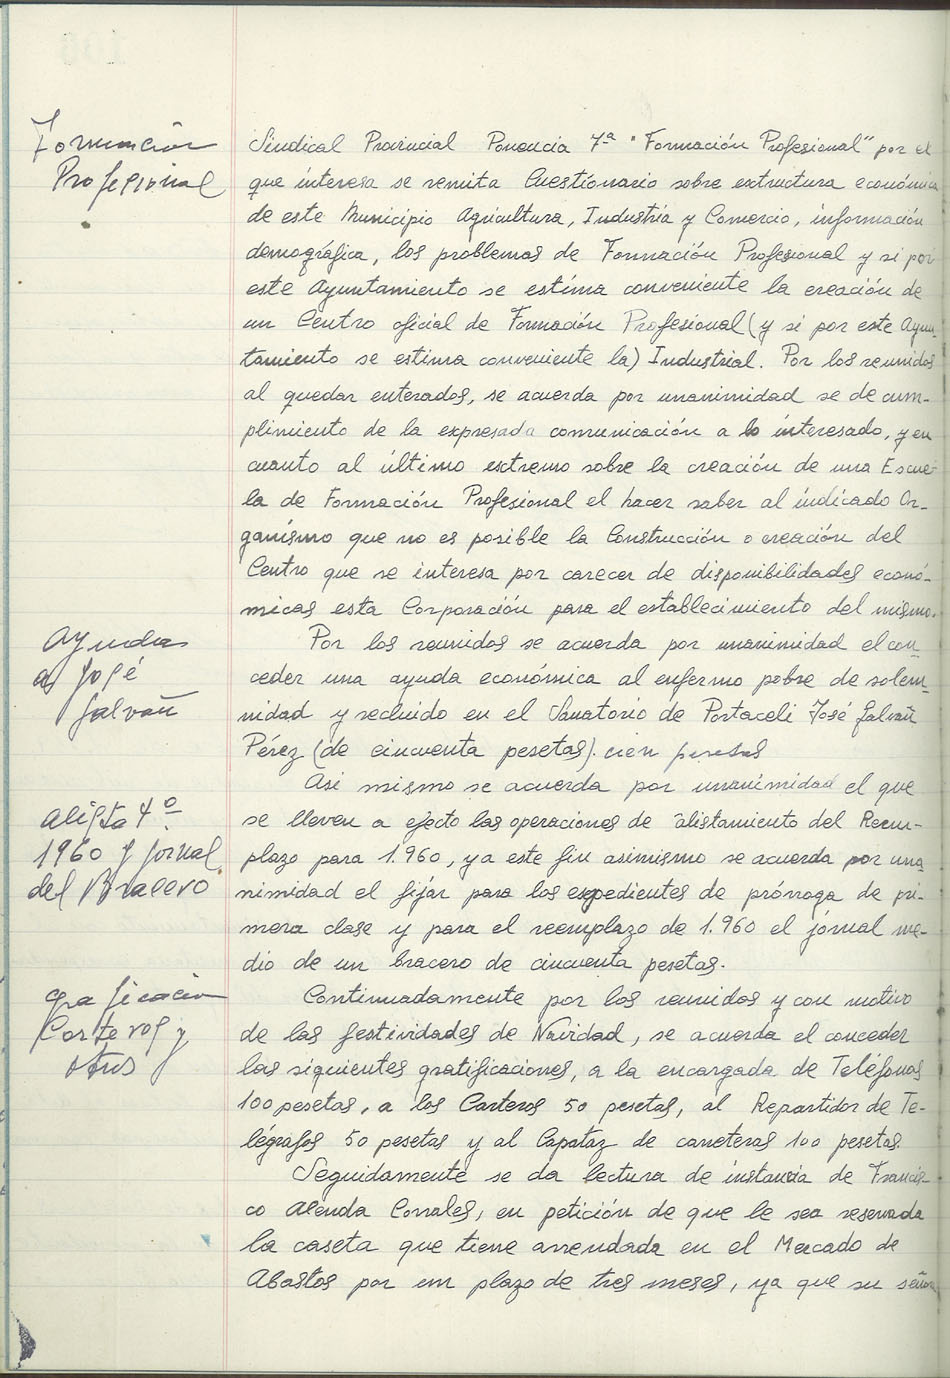 Formación
Profesional
Sindical Provincial Ponencia 7ª "Formación Profesional" por el
que interesa se remita Cuestionario sobre extructura económica
de este Municipio Agricultura, Industria y Comercio, información
demográfica, los problemas de Formación Profesional y si por
este Ayuntamiento se estima conveniente la creación de
un Centro oficial de Formación Profesional (y si por este Ayun-
tamiento se estima conveniente la) Industrial. Por los reunidos
al quedar enterados, se acuerda por unanimidad se de cum-
plimiento de la expresada comunicación a lo interesado, y en
cuanto al último extremo sobre la creación de una Escue-
la de Formación Profesional el hacer saber al indicado Or-
ganismo que no es posible la Construcción o creación del
Centro que se interesa por carecer de disponibilidades econó-
micas esta Corporación para el establecimiento del mismo.
Ayudas
a José
Galvañ
Por los reunidos se acuerda por unanimidad el con-
ceder una ayuda económica al enfermo pobre de solem-
nidad y recluido en el Sanatorio de Portaceli José Galvañ
Pérez (de cincuenta pesetas). cien pesetas
Asi mismo se acuerda por unanimidad el que
se lleven a efecto las operaciones de alistamiento del Reem-
plazo para 1.960, y a este fin asimismo se acuerda por una
nimidad el fijár para los expedientes de prórroga de pri-
mera clase y para el reemplazo de 1.960 el jórnal me-
dio de un bracero de cincuenta pesetas.
Alistº 4º
1960 y jornal
del Bracero
Gratificación
Carteros y
otros
Continuadamente por los reunidos y con motivo
de las festividades de Navidad, se acuerda el conceder
las siguientes gratificaciones, a la encargada de Teléfonos
100 pesetas, a los Carteros 50 pesetas, al Repartidor de Te-
légrafos 50 pesetas y al Capatáz de carreteras 100 pesetas.
Seguidamente se da lectura de instancia de Francis-
co Alenda Corrales, en petición de que le sea reservada
la caseta que tiene arrendada en el Mercado de
Abastos por un plazo de tres meses, ya que su señora